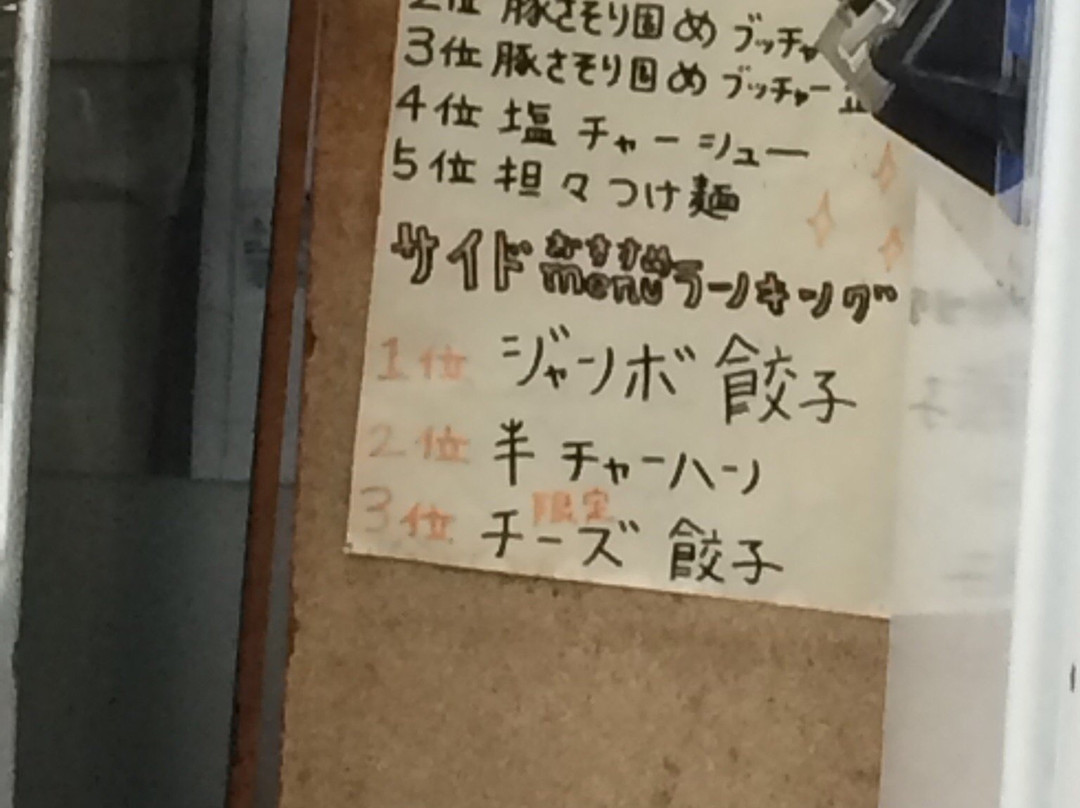 2位 豚さそり固め ブッチャ
3位 豚さそり固め ブッチャー
4位 塩 チャーシュー
5位 担々つけ麺
サイド おすすめmenu ランキング
1位 ジャンボ 餃子
2位 半 チャーハン
3位 限定 チーズ 餃子